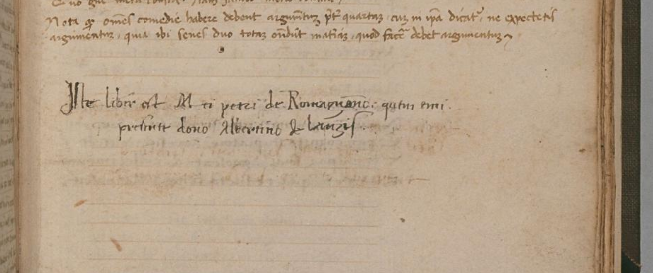 Nota qḋ omnes comedie habere debent argumentum pter quartam, cum in ipa dicat, ne expectetis
argumentum, quia ibi senes duo totam ondunt matiam, quod facere debet argumentum
Iste liber est M ci petri de Romagnano: quem emi
presente dono Albertino de lanzis